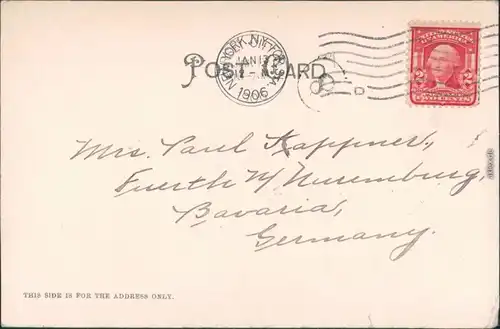 POST CARD
NEW YORK, N.Y.
JAN 13
1906
D
UNITED STATES OF AMERICA
2 2
TWO CENTS
Mrs. Paul Kappner,
Fuerth N/ Nuremburg,
Bavaria,
Germany.
THIS SIDE IS FOR THE ADDRESS ONLY.